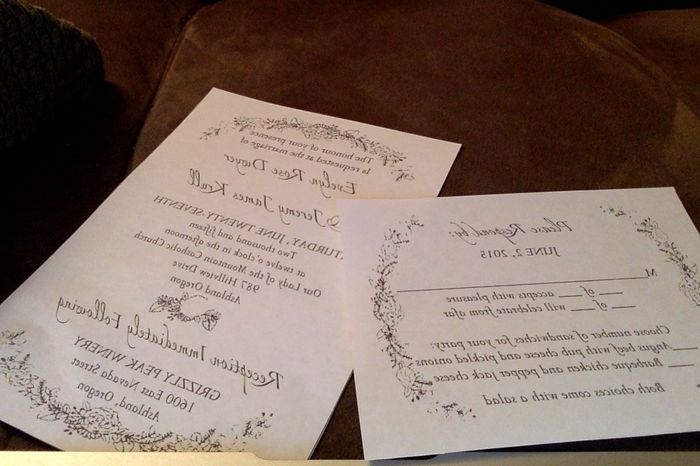 The honour of your presence
Is requested at the marriage of
Evelyn Rose Dwyer
& Jeremy James Krall
SATURDAY, JUNE TWENTY SEVENTH
Two thousand and fifteen
at twelve o'clock in the afternoon
Our Lady of the Mountain Catholic Church
987 Hillview Drive
Ashland Oregon
Reception Immediately Following
GRIZZLY PEAK WINERY
1600 East Nevada Street
Ashland, Oregon
Please Respond by:
JUNE 2, 2015
M
___ of ___ accepts with pleasure
___ of ___ will celebrate from afar
Choose number of sandwiches for your party:
___ Angus beef with pub cheese and pickled onions
___ Barbeque chicken and pepper jack cheese
Both choices come with a salad